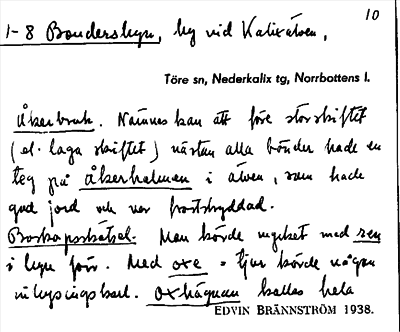 10
1-8 Bondersbyn, by vid Kalixälven,
Töre sn, Nederkalix tg, Norrbottens l.
Åkerbruk. Nämnes kan att före storskiftet
(el. laga skiftet) nästan alla bönder hade en
teg på Åkerholmen i älven, som hade
god jord och var frostskyddad.
Boskapsskötsel. Man körde mycket med ren
i byn förr. Med oxe = tjur körde någon
inhysingskarl. Oxhägnan kallas hela
EDVIN BRÄNNSTRÖM 1938.